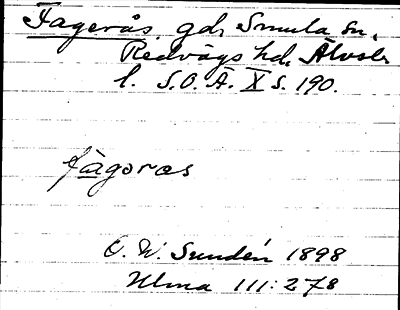 Fagerås, gd, Smula sn,
Redvägs hd, Älvsb.
l. S.O.Ä. X s. 190.
fàgøras
O. W. Sundén 1898
Ulma 111:278